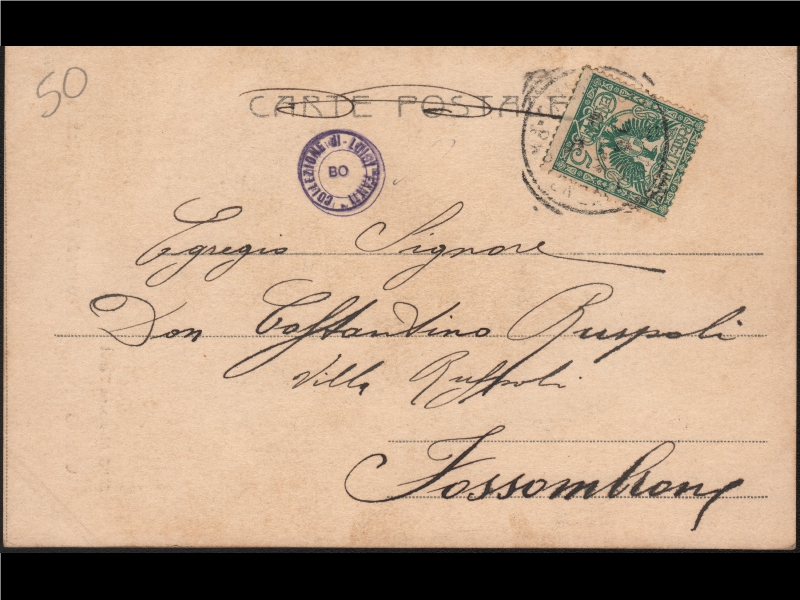 50
CARTE POSTALE
COLLEZIONE di LUIGI FANTI
BO
5
Egregio Signore
Don Costantino Ruspoli
Villa Ruspoli
Fossombrone